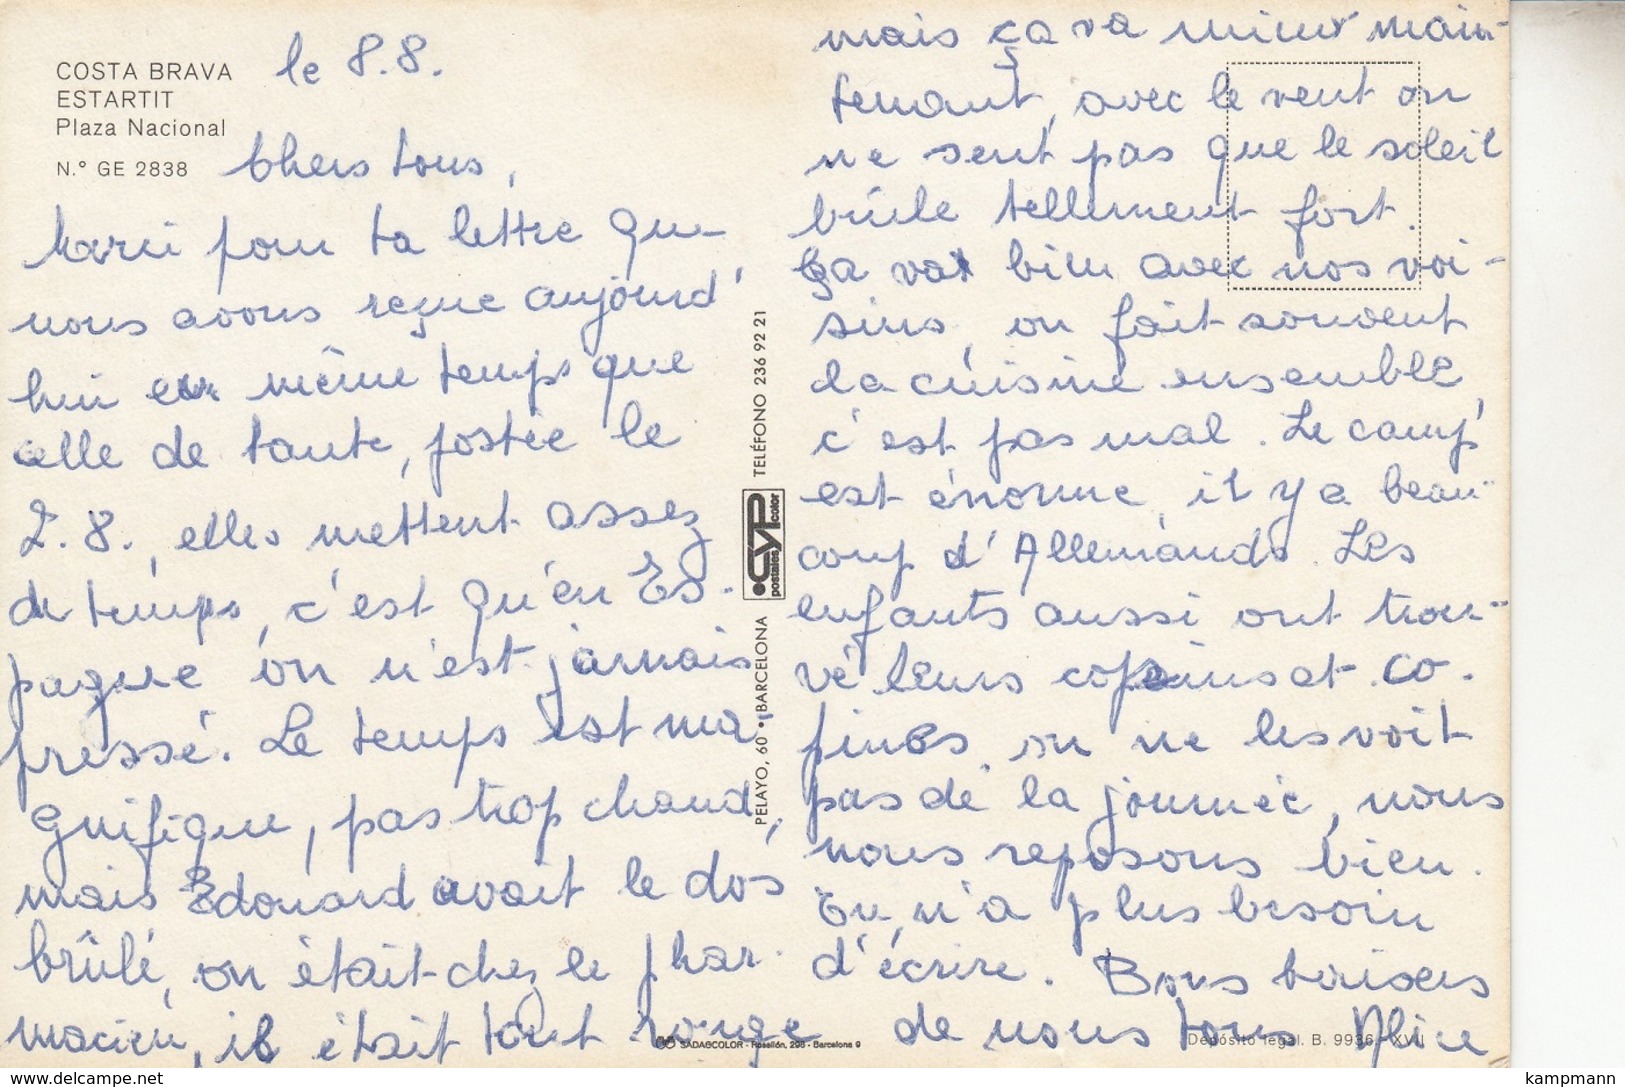 COSTA BRAVA
ESTARTIT
Plaza Nacional
N.° GE 2838
le 8.8.
Chers tous,
Merci pour ta lettre que
nous avons reçue aujourd'
hui en même temps que
celle de tante, postée le
2.8., elles mettent assez
de temps, c'est qu'en Es-
pagne on n'est jamais
pressé. Le temps est ma-
gnifique, pas trop chaud,
mais Edouard avait le dos
brûlé, on était chez le phar-
macien, il était tout rouge
mais ça va mieux main-
tenant, avec le vent on
ne sent pas que le soleil
brûle tellement fort.
Ça va bien avec nos voi-
sins, on fait souvent
la cuisine ensemble,
c'est pas mal. Le camp
est énorme, il y a beau-
coup d'Allemands. Les
enfants aussi ont trou-
vé leurs copains et co-
pines, on ne les voit
pas de la journée, nous
nous reposons bien.
On n'a plus besoin
d'écrire. Bons baisers
de nous tous Alice
PELAYO, 60 • BARCELONA TELÉFONO 236 92 21
CYP
postales color
SADAGCOLOR - Rosellón, 298 - Barcelona 9
Depósito legal. B. 9936 - XVII
www.delcampe.net
kampmann